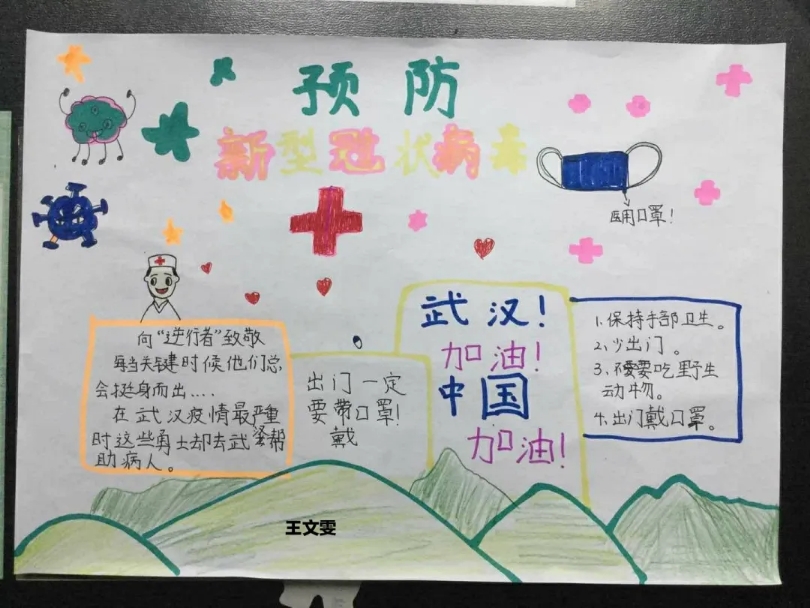 预防
新型冠状病毒
医用口罩!
向“逆行者”致敬
每当关键时候他们总
会挺身而出....
在武汉疫情最严重
时这些勇士却去武
帮
助病人。
出门一定
要带口罩!
戴
武汉!
加油!
中国
加油!
1.保持手部卫生。
2.少出门。
3.不要吃野生
动物。
4.出门戴口罩。
王文雯